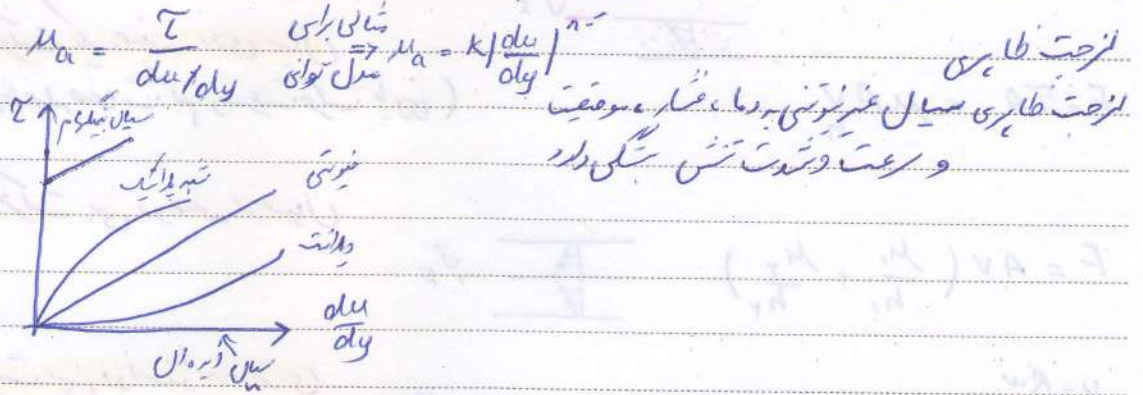 لزجت ظاهری
μa = τ / du/dy مثالی برای مدل توانی ⇒ μa = k|du/dy|ⁿ⁻
لزجت ظاهری سیال غیر نیوتنی به دما، فشار، موقعیت
و سرعت و شدت تنش بستگی دارد
τ
سیال بینگهام
شبه پلاستیک
نیوتنی
دیلاتنت
du/dy
سیال ایده ال